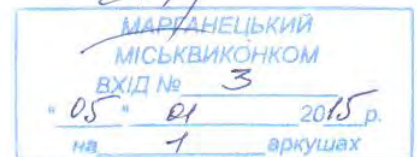 МАРГАНЕЦЬКИЙ
МІСЬКВИКОНКОМ
ВХІД № 3
"05" 01 2015 р.
на 1 аркушах